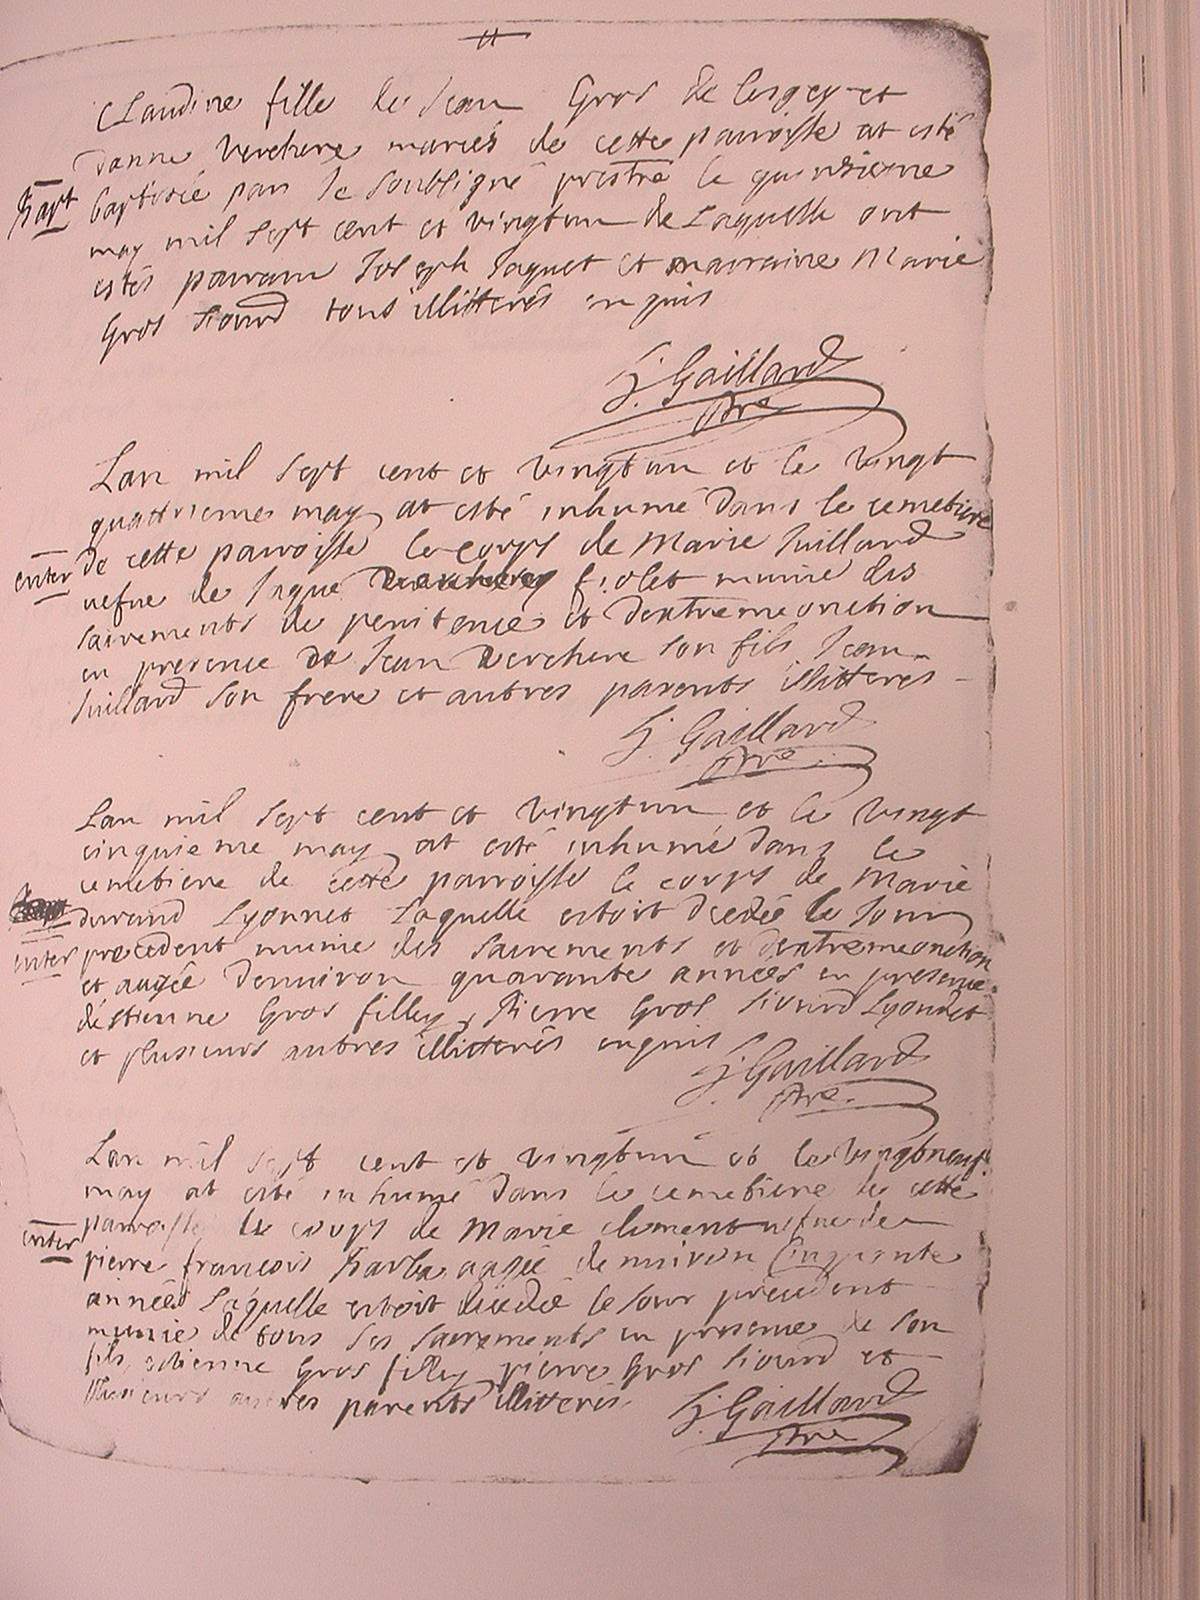 Claudine fille de Jean Gros de
danne Verchere mariés de cette parroisse at esté
Bapt
baptisée par le soubsigné prestre le quinsieme
may mil sept cent et vingtun de Laquelle ont
estés parrain Joseph Jaquet et marraine Marie
Gros Siourd tous illitterés enquis
J. Gaillard
ptre
Lan mil sept cent et vingtun et le vingt
quattrieme may at esté inhumé dans le cemetiere
enter
de cette parroisse le corps de Marie Juillard
vefve de Jaque fiolet munie des
sacrements de penitence et dextremeonction
en presence de Jean Verchere son fils Jean
Juillard son frere et autres parents illitteres
J. Gaillard
ptre
Lan mil sept cent et vingtun et le vingt
cinquieme may at esté inhumé dans le
cemetiere de cette parroisse le corps de Marie
durand Lyonnet Laquelle estoit decedée le Jour
enter
precedent munie des sacrements et dextremeonction
et augée denuiron quarante années en presence
destienne Gros filley Pierre Gros Siourd Lyonnet
et plusieurs autres illitterés enquis
J. Gaillard
ptre
Lan mil sept cent et vingtun et le vingtneuf
may at esté inhumé dans le cemetiere de cette
parroisse le corps de Marie clement vefve de
enter
pierre francois Barba augée denuiron cinquante
années Laquelle estoit decedée le Jour precedent
munie de tous ses sacrements en presence de son
fils estienne Gros filley pierre Gros Siourd et
plusieurs autres parents illitteres
J. Gaillard
ptre